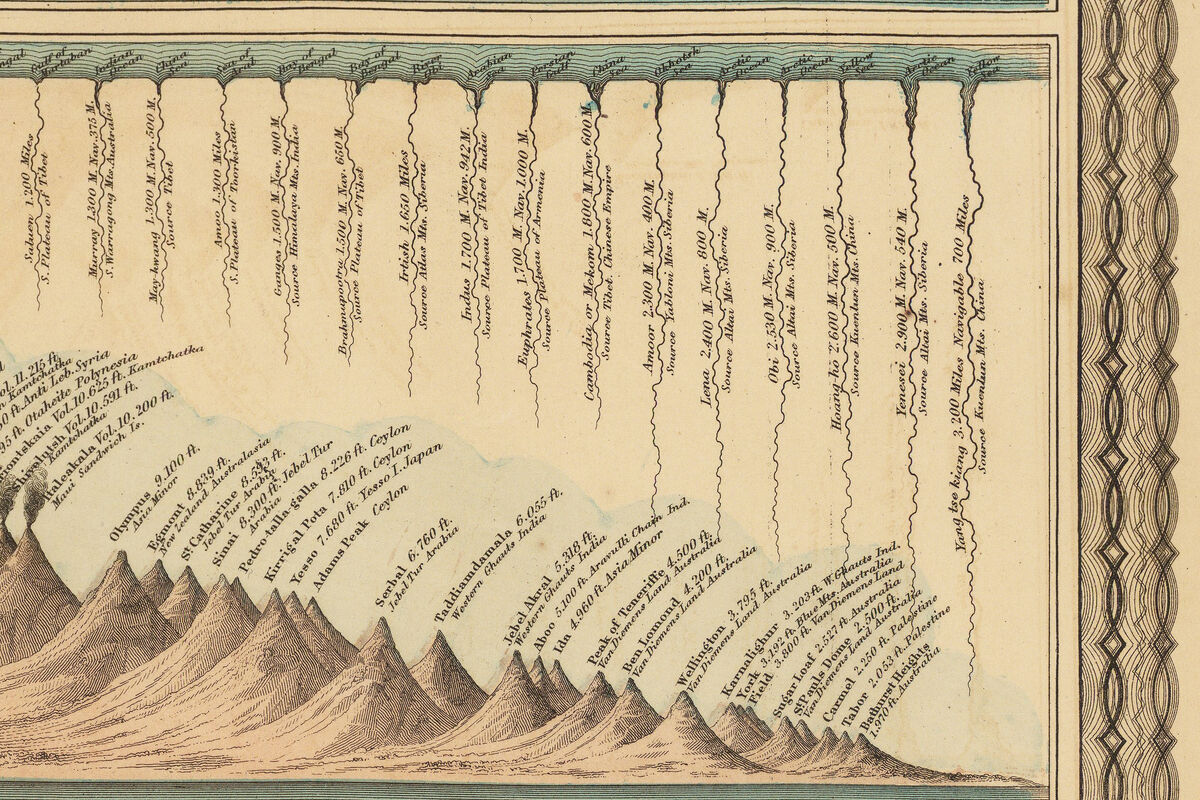 Gulf of
Martaban
Indian
Ocean
China
Sea
Sea of
Aral
Bay of
Bengal
Bay of
Bengal
River
Obi
Arabian
Sea
Persian
Gulf
China
Sea
Okhotsk
Sea
Arctic
Ocean
Arctic
Ocean
Yellow
Sea
Arctic
Ocean
Yellow
Sea
Saluen 1.900 Miles
S. Plateau of Tibet
Murray 1.300 M. Nav. 375 M.
S. Warragong Mts. Australia
Maykwang 1.300 M. Nav. 500 M.
Source Tibet
Amoo 1.300 Miles
S. Plateau of Thorkistan
Ganges 1.500 M. Nav. 900 M.
Source Himalaya Mts. India
Brahmapootra 1.500 M. Nav. 650 M
Source Plateau of Tibet
Irtish 1.650 Miles
Source Atlas Mts. Siberia
Indus 1.700 M. Nav. 942 M.
Source Plateau of Tibet India
Euphrates 1.700 M. Nav. 1.000 M.
Source Plateau of Armenia
Cambodia or Mekom 1.800 M. Nav. 600 M.
Source Tibet. Chinese Empire
Amoor 2.300 M. Nav. 400 M.
Source Yabloni Mts. Siberia
Lena 2.400 M. Nav. 600 M.
Source Altai Mts. Siberia
Obi 2.530 M. Nav. 900 M.
Source Altai Mts. Siberia
Hoang-ho 2.600 M. Nav. 500 M.
Source Kuenlun Mts. China
Yenesei 2.900 M. Nav. 540 M.
Source Altai Mts. Siberia
Yang tse kiang 3.200 Miles Navigable 700 Miles
Source Kuenlun Mts. China
Vol. 11.215 ft.
Kamtchatka
ft. Anti Leb. Syria
ft. Otaheite Polynesia
Vol. 10.625 ft. Kamtchatka
Vol. 10.591 ft.
Kamtchatka
Haleakala Vol. 10.200 ft.
Maui Sandwich Is.
Olympus 9.100 ft.
Asia Minor
Egmont 8.839 ft.
New Zealand Australasia
St. Catharine 8.593 ft.
Jebel Tur Arabia
Sinai 8.300 ft. Jebel Tur
Arabia
Pedro-talla-galla 8.226 ft. Ceylon
Kirrigal Pota 7.810 ft. Ceylon
Yesso 7.680 ft. Yesso I. Japan
Adams Peak Ceylon
Serbal 6.760 ft.
Jebel Tur Arabia
Taddiamdamala 6.055 ft.
Western Ghauts India
Jebel Akral 5.318 ft.
Western Ghauts India
Aboo 5.100 ft. Aravulli Chain Ind.
Ida 4.960 ft. Asia Minor
Peak of Teneriffe 4.500 ft.
Van Diemens Land Australia
Ben Lomond 4.200 ft.
Van Diemens Land Australia
Wellington 3.795 ft.
Van Diemens Land Australia
Kurnalighur 3.203 ft. W. Ghauts Ind.
York 3.192 ft. Blue Mts. Australia
Field 3.000 ft. Van Diemens Land
Sugar Loaf 2.527 ft. Australia
St. Pauls Dome 2.500 ft.
Van Diemens Land Australia
Carmel 2.250 ft. Palestine
Tabor 2.053 ft. Palestine
Bathurst Heights
1.970 ft. Australia